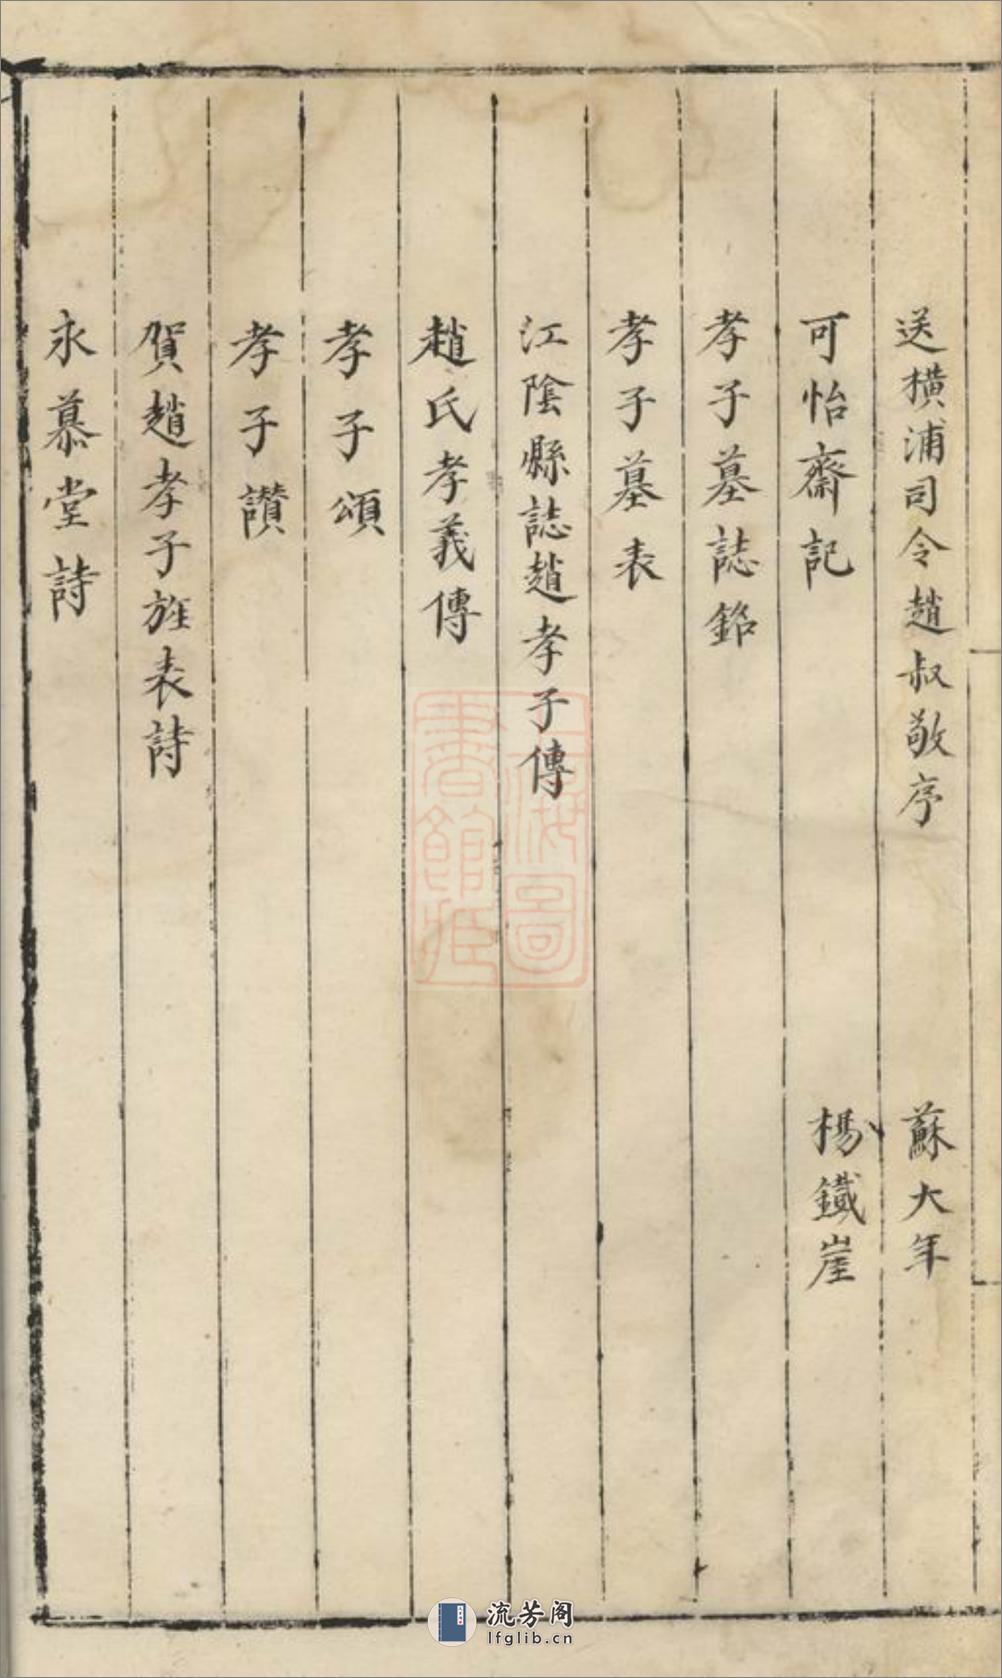 送橫浦司令趙叔敬序 蘇大年
可怡齋記 楊鐵崖
孝子墓誌銘
孝子墓表
江陰縣誌趙孝子傳
趙氏孝義傳
孝子頌
孝子讚
賀趙孝子旌表詩
永慕堂詩
上海圖書館藏
流芳阁
lfglib.cn